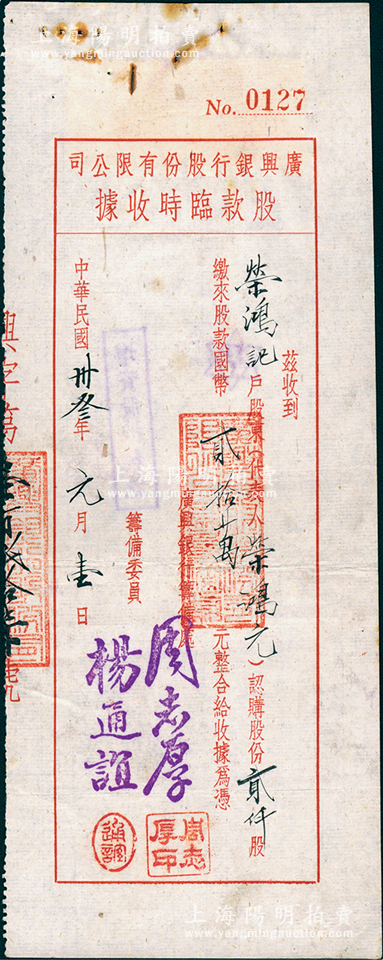 上海陽明拍賣
www.yangmingauction.com
No. 0127
廣興銀行股份有限公司
股款臨時收據
茲收到
榮鴻記戶股東(代表人榮鴻元)認購股份貳仟股
繳來股款國幣貳拾萬元整合給收據爲憑
廣興銀行籌備處
籌備委員
周志厚
楊通誼
周志厚印
通誼
中華民國卅叁年元月壹日
興字第
號
上海陽明拍賣
www.yangmingauction.com
上海陽明拍賣
www.yangmingauction.com